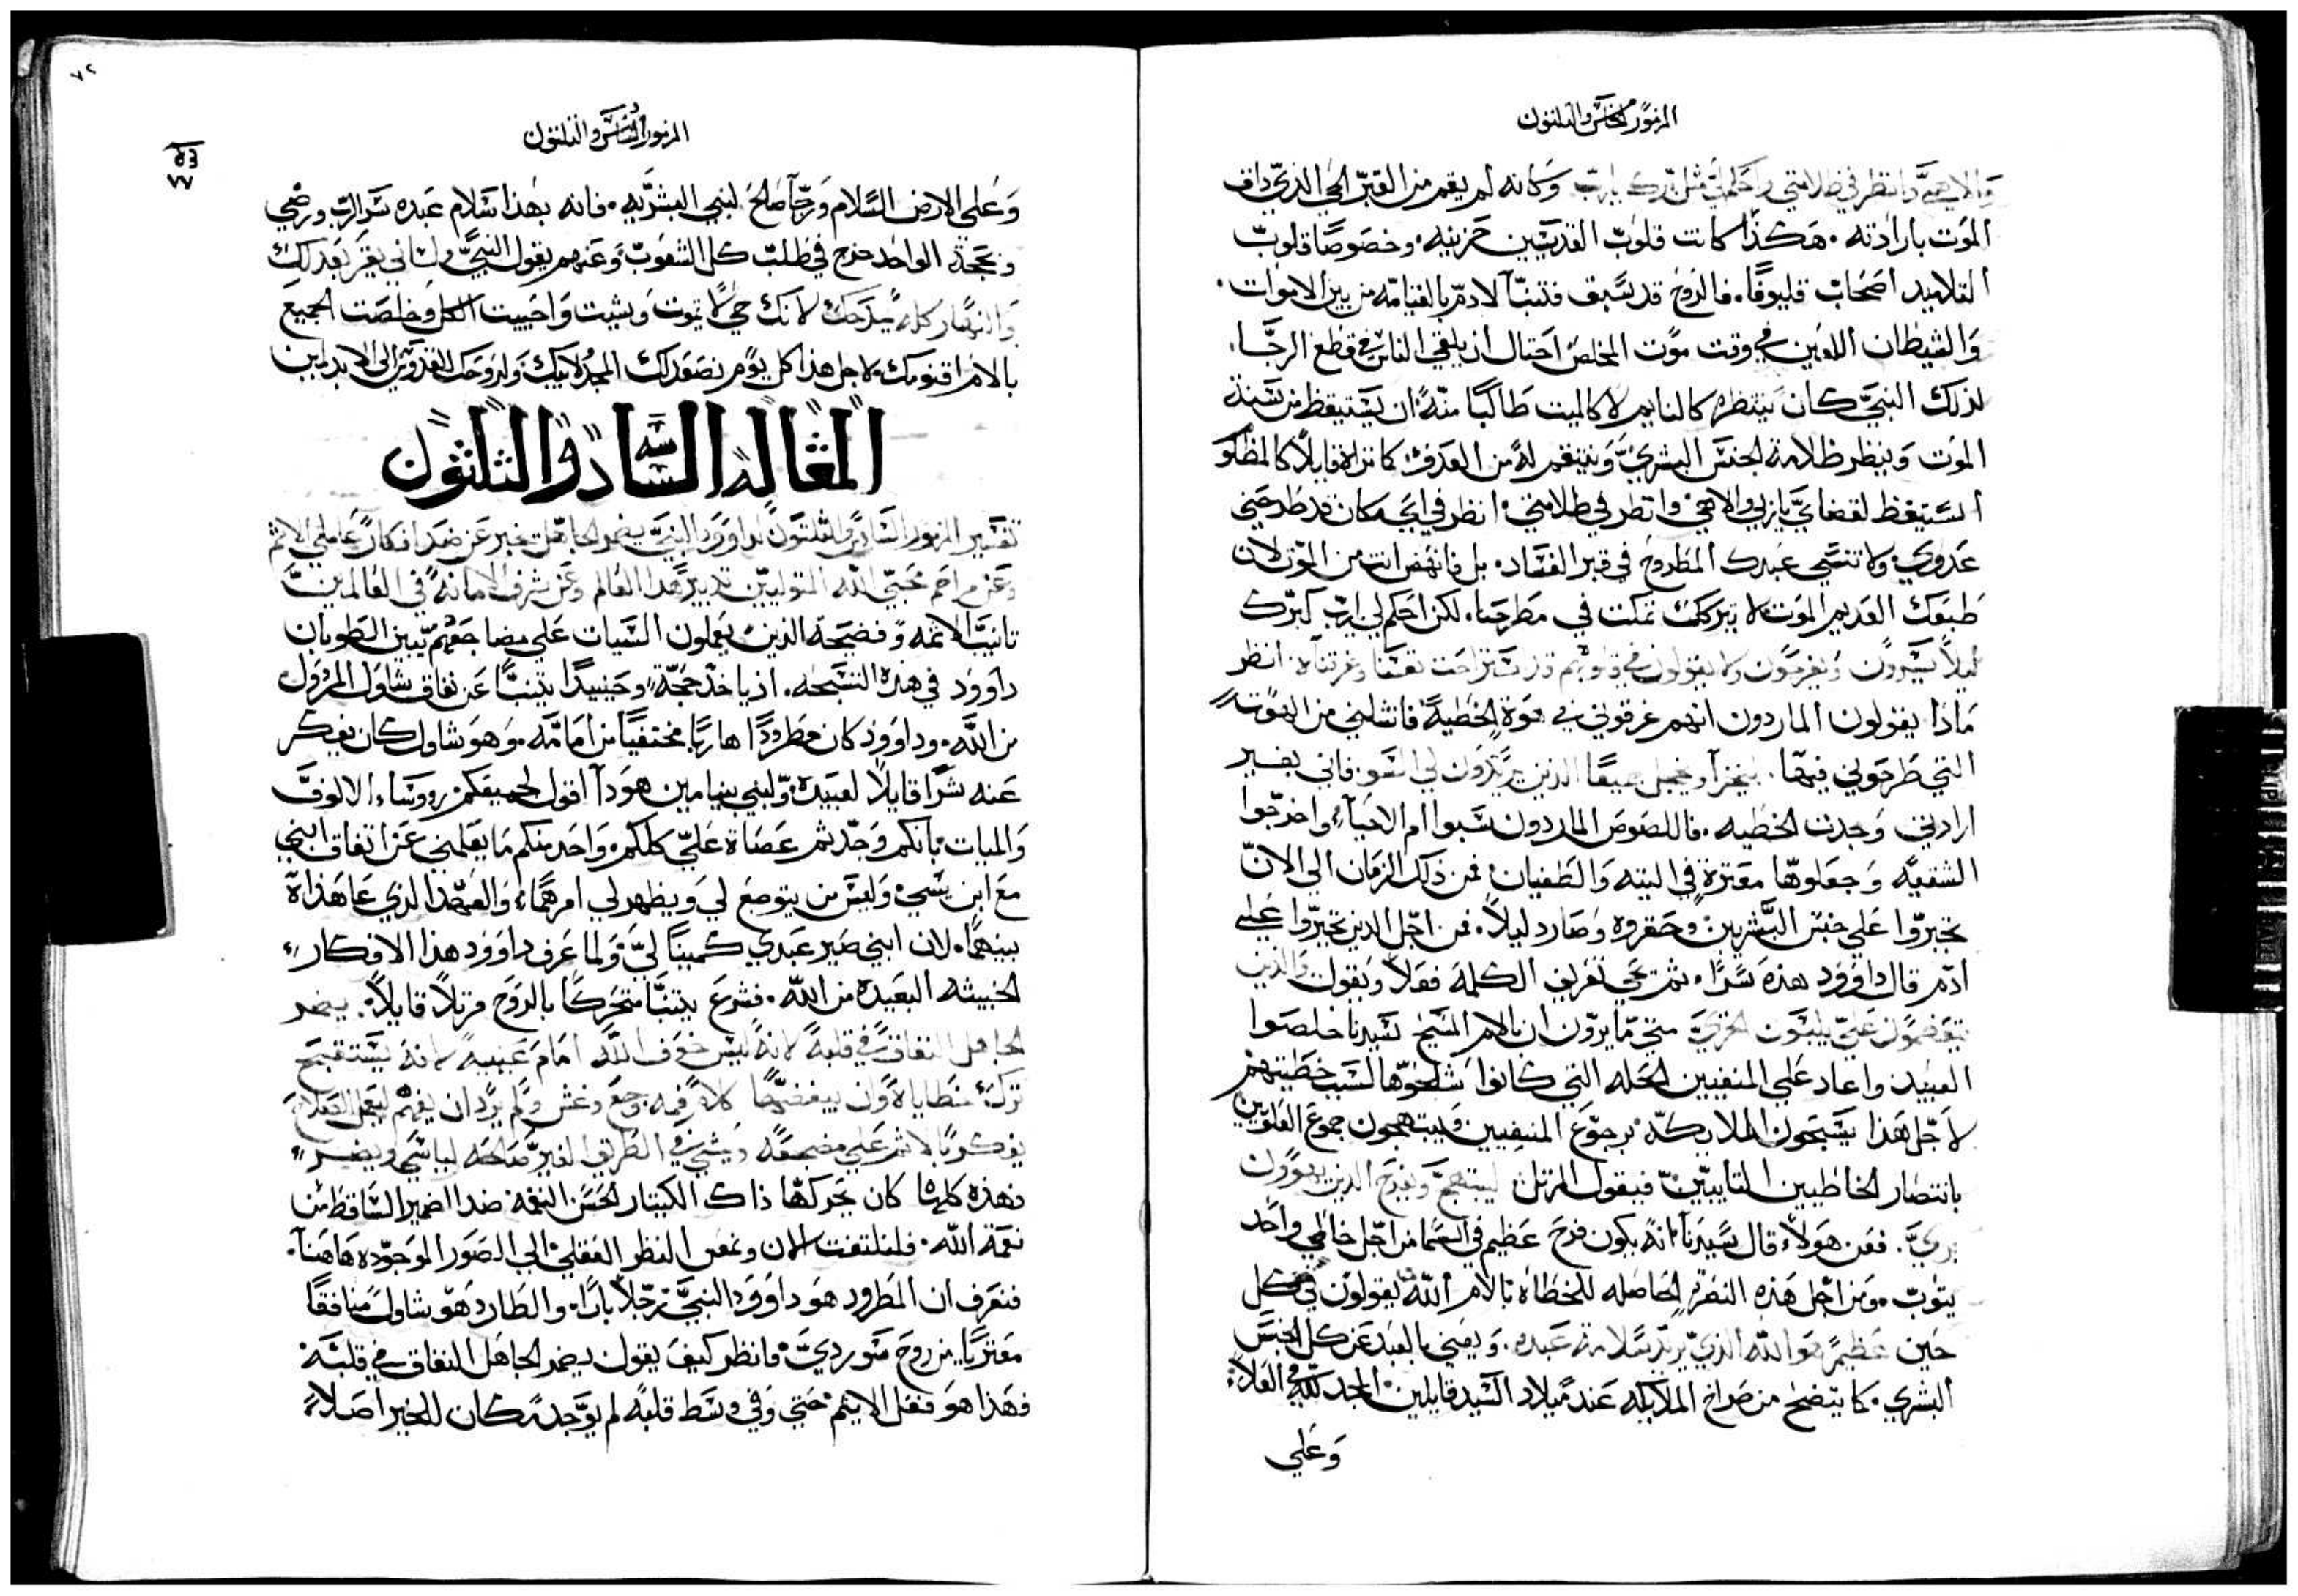 المزمور الخامس والثلثون
والاهي وانظر في ظلامتي واحكم لي مثل برك يارب وكانه لم يقم من القبر الحي الذي ذاق
الموت بارادته. هكذا كانت قلوب القديسين حزينه. وخصوصا قلوب
التلاميد اصحاب قليوفا. فالروح قد سبق فتنبا لادم بالقيامه من بين الاموات.
والشيطان اللعين في وقت موت المخلص احتال ان يلقي الناس في قطع الرجا.
لذلك النبي كان ينتظره كالنايم لا كالميت طالبا منه ان يستيقظ من سنة
الموت وينظر ظلامة الجنس البشري وينتقم له من العدو كما تراه قايلا كالمظلو
استيقظ لقضاي ياربي والاهي وانظر في ظلامتي. انظر في اي مكان قد طرحني
عدوي ولا تنسي عبدك المطروح في قبر الفساد. بل فانهض انت من الموت لان
طبعك القديم الموت لا يتركك تمكت في مطرحنا. لكن احكم لي يارب كبرك
ليلا يسرون ويفرحون ولا يقولون في قلوبهم قد استراحت نفسنا وغرقناه. انظر
ماذا يقولون الماردون انهم غرقوني في هوة الخطية فانشلني من الهوت
التي طرحوني فيها. ليخزا ويخجل جميعا الذين يريدون لي السو فاني بغير
ارادتي وجدت الخطيه. فاللصوص الماردون سبوا ام الاحيآء واخرجوا
الشقيه وجعلوها معترة في التيه والطغيان فمن ذلك الزمان الي الان
تجبروا علي جنس البشريين وحقروه وصار دليلا. فمن اجل الدين تجبروا علي
ادم قال داوود هذه سرا. ثم تجي تعريف الكلمة فعلا ويقول والدين
يتعضمون علي يلبسون الخزي متي ما يرون ان بالام المسيح سيدنا خلصوا
العبيد واعاد علي المنفيين الحله التي كانوا شلحوها لسبب خطيتهم
لاجل هذا يسبحون الملايكه برجوع المنفيين ويبتهجون جموع العلويين
بانتصار الخاطيين التاييين فيقول المرتل ليبتهج ويفرح الدين يهوون
بري. فعن هولا قال سيدنا انه يكون فرح عظيم في السما من اجل خاطي واحد
يتوب. ومن اجل هذه النصرة الحاصله للخطاه بالام الله يقولون في كل
حين عظيم هو الله الذي يريد سلامة عبده. ويعني بالعبد عن كل الجنس
البشري. كما يتضح من صراخ الملايكه عند ميلاد السيد قايلين المجد لله في العلا
وعلي
٧٢
٧٧
المزمور السادس والثلثون
وعلي الارض السلام ورجآ صالح لبني البشريه. فانه بهذا سلام عبده سر الرب ورضي
وبحجة الواحد خرج في طلب كل الشعوب وعنهم يقول النبي ولساني يقر بعدلك
والنهار كله يمدحك لانك حي لا تموت وبشيت واحييت الكل وخلصت الجميع
بالام اقنومك. لاجل هذا كل يوم نصعد لك المجد لابيك ولروحك القدوس الي الابد امين
المقاله السادسه والثلثون
تفسير المزمور السادس والثلثون لداوود النبي يضمر الجاهل يخبر عن ضد افكار عاملي الاثم
وعن مراحم محبي الله المتوليين تدبير هدا العالم وعن شرف الامانة في العالمين
تانيب الاثمه وفضحة الدين يعملون السيات علي مضاجعهم يبين الطوبان
داوود في هذه التسبحه. اذ ياخذ حجة وحينيدا يتنبا عن نفاق شاول المرذول
من الله. وداوود كان مطرودا هاربا مختفيا من امامه. وهو شاول كان يفكر
عنه شرا قايلا لعبيده ولبني بنيامين هودا اقول لجميعكم روسآء الالوف
والميات بانكم وجدتم عصاة علي كلكم. وواحد منكم ما يعلمني عن اتفاق ابني
مع ابن يسي وليس من يتوضع لي ويظهر لي امرهما. والعهد الذي عاهداه
بينهما. لان ابني صير عبدي كمينا لي. ولما عرف داوود هذا الافكار
الخبيثه البعيده من الله. فشرع يتنبا متحركا بالروح مرتلا قايلا. يضمر
الجاهل النفاق في قلبه لانه ليس خوف الله امام عينيه لانه يستقبح
ترك خطاياه وان يبغضها كلام فمه وجع وغش ولم يرد ان يفهم ليعمل الصلاح
يفكر بالاثم علي مضجعه ويمشي في الطريق الغير صالحه ليا شي ويضير
فهذه كلها كان يحركها ذاك الكيتار الحسن النغمه ضد الضمير الساقط من
نعمة الله. فلنلتفت الان ونمعن النظر العقلي الي الصور الموجوده هاهنا.
فنعرف ان المطرود هو داوود النبي رجلا بارا. والطارد هو شاول منافقا
معتريا من روح شوردي. فانظر كيف يقول يضمر الجاهل النفاق في قلبه
فهذا هو فعل الاثيم حتي وفي وسط قلبه لم يوجد مكان للخير اصلا